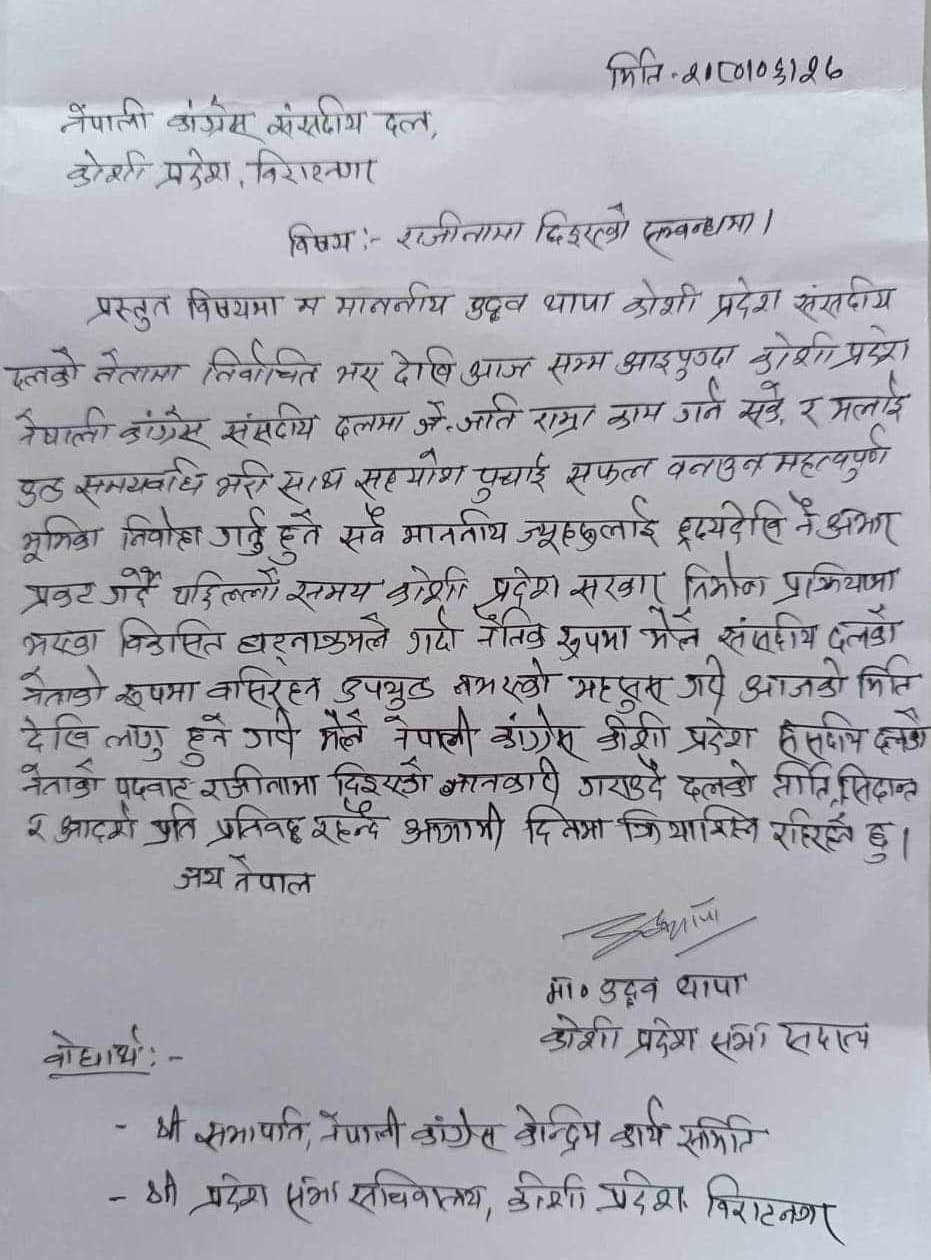 मिति - २०८०।०६।२७
नेपाली कांग्रेस संसदीय दल,
कोशी प्रदेश, विराटनगर
विषय :- राजीनामा दिइएको सम्बन्धमा।
प्रस्तुत विषयमा म माननीय उद्धव थापा कोशी प्रदेश संसदीय
दलको नेतामा निर्वाचित भए देखि आज सम्म आइपुग्दा कोशी प्रदेश
नेपाली कांग्रेस संसदीय दलमा जे-जति राम्रा काम गर्न सकें, र मलाई
उक्त समयावधि भरी साथ सहयोग पुर्‍याई सफल बनाउन महत्वपुर्ण
भूमिका निर्वाह गर्नु हुने सबै माननीय ज्यूहरुलाई हृदयदेखि नै आभार
प्रकट गर्दै पछिल्लो समय कोशी प्रदेश सरकार निर्माण प्रक्रियामा
भएका विकसित घटनाक्रमले गर्दा नैतिक रुपमा मैले संसदीय दलको
नेताको रूपमा बसिरहन उपयुक्त नभएको महसुस गरी आजको मिति
देखि लागु हुने गरी मैले नेपाली कांग्रेस कोशी प्रदेश संसदीय दलको
नेताको पदबाट राजीनामा दिइएको जानकारी गराउदै दलको नीति, सिदान्त
र आदर्श प्रति प्रतिवद्ध रहन्दै आगामी दिनमा क्रियाशिल रहिरहने छु।
जय नेपाल
मा० उद्धव थापा
कोशी प्रदेश सभा सदस्य
वोधार्थ :-
- श्री सभापति, नेपाली कांग्रेस केन्द्रिय कार्य समिति
- श्री प्रदेश सभा सचिवालय, कोशी प्रदेश विराटनगर